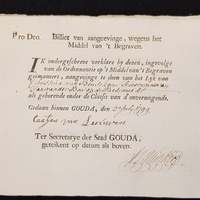 Pro Deo. Billiet van aangeevinge, wegens het
Middel van 't Begraven.
IK ondergeschreve verklare by dezen, ingevolge
van de Ordonnantie op 't Middel van 't Begraven
geëmaneert, aangevinge te doen van het Lyk van
als gehorende onder de Classe van d'onvermogende.
Gedaan binnen GOUDA, den 2 july 1799
van Leeuwen
Ter Secretarye der Stad GOUDA,
getekent op datum als boven.